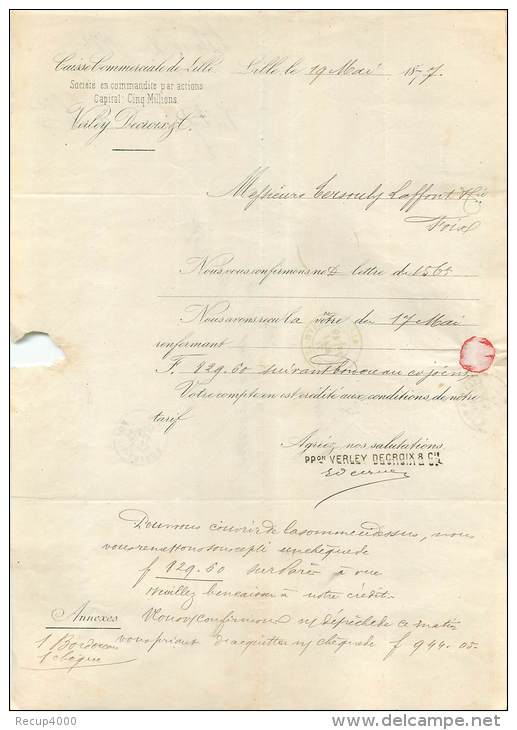 Caisse Commerciale de Lille
Lille le 19 Mai 187.
Société en commandite par actions
Capital: Cinq Millions
Verley Decroix & Cie
Messieurs Laffont & Cie
Foix
Nous vous confirmons no/ lettre du 15 Ct
Nous avons reçu la vôtre du 17 Mai
renfermant
F. 929.60 suivant bordereau ci joint
Votre compte en est crédité aux conditions de notre
tarif
Agréez nos salutations
PPON VERLEY DECROIX & CIE
Pour nous couvrir de la somme ci dessus, nous
vous remettons sous ce pli un chèque de
f 929.60 sur Paris à vue
Veuillez bien en à notre crédit
Annexes Nous confirmons n/ dépêche de ce matin
1 Bordereau vous priant d'acquitter n/ chèque de f 944.05
1 chèque
Recup4000
www.delcampe.net